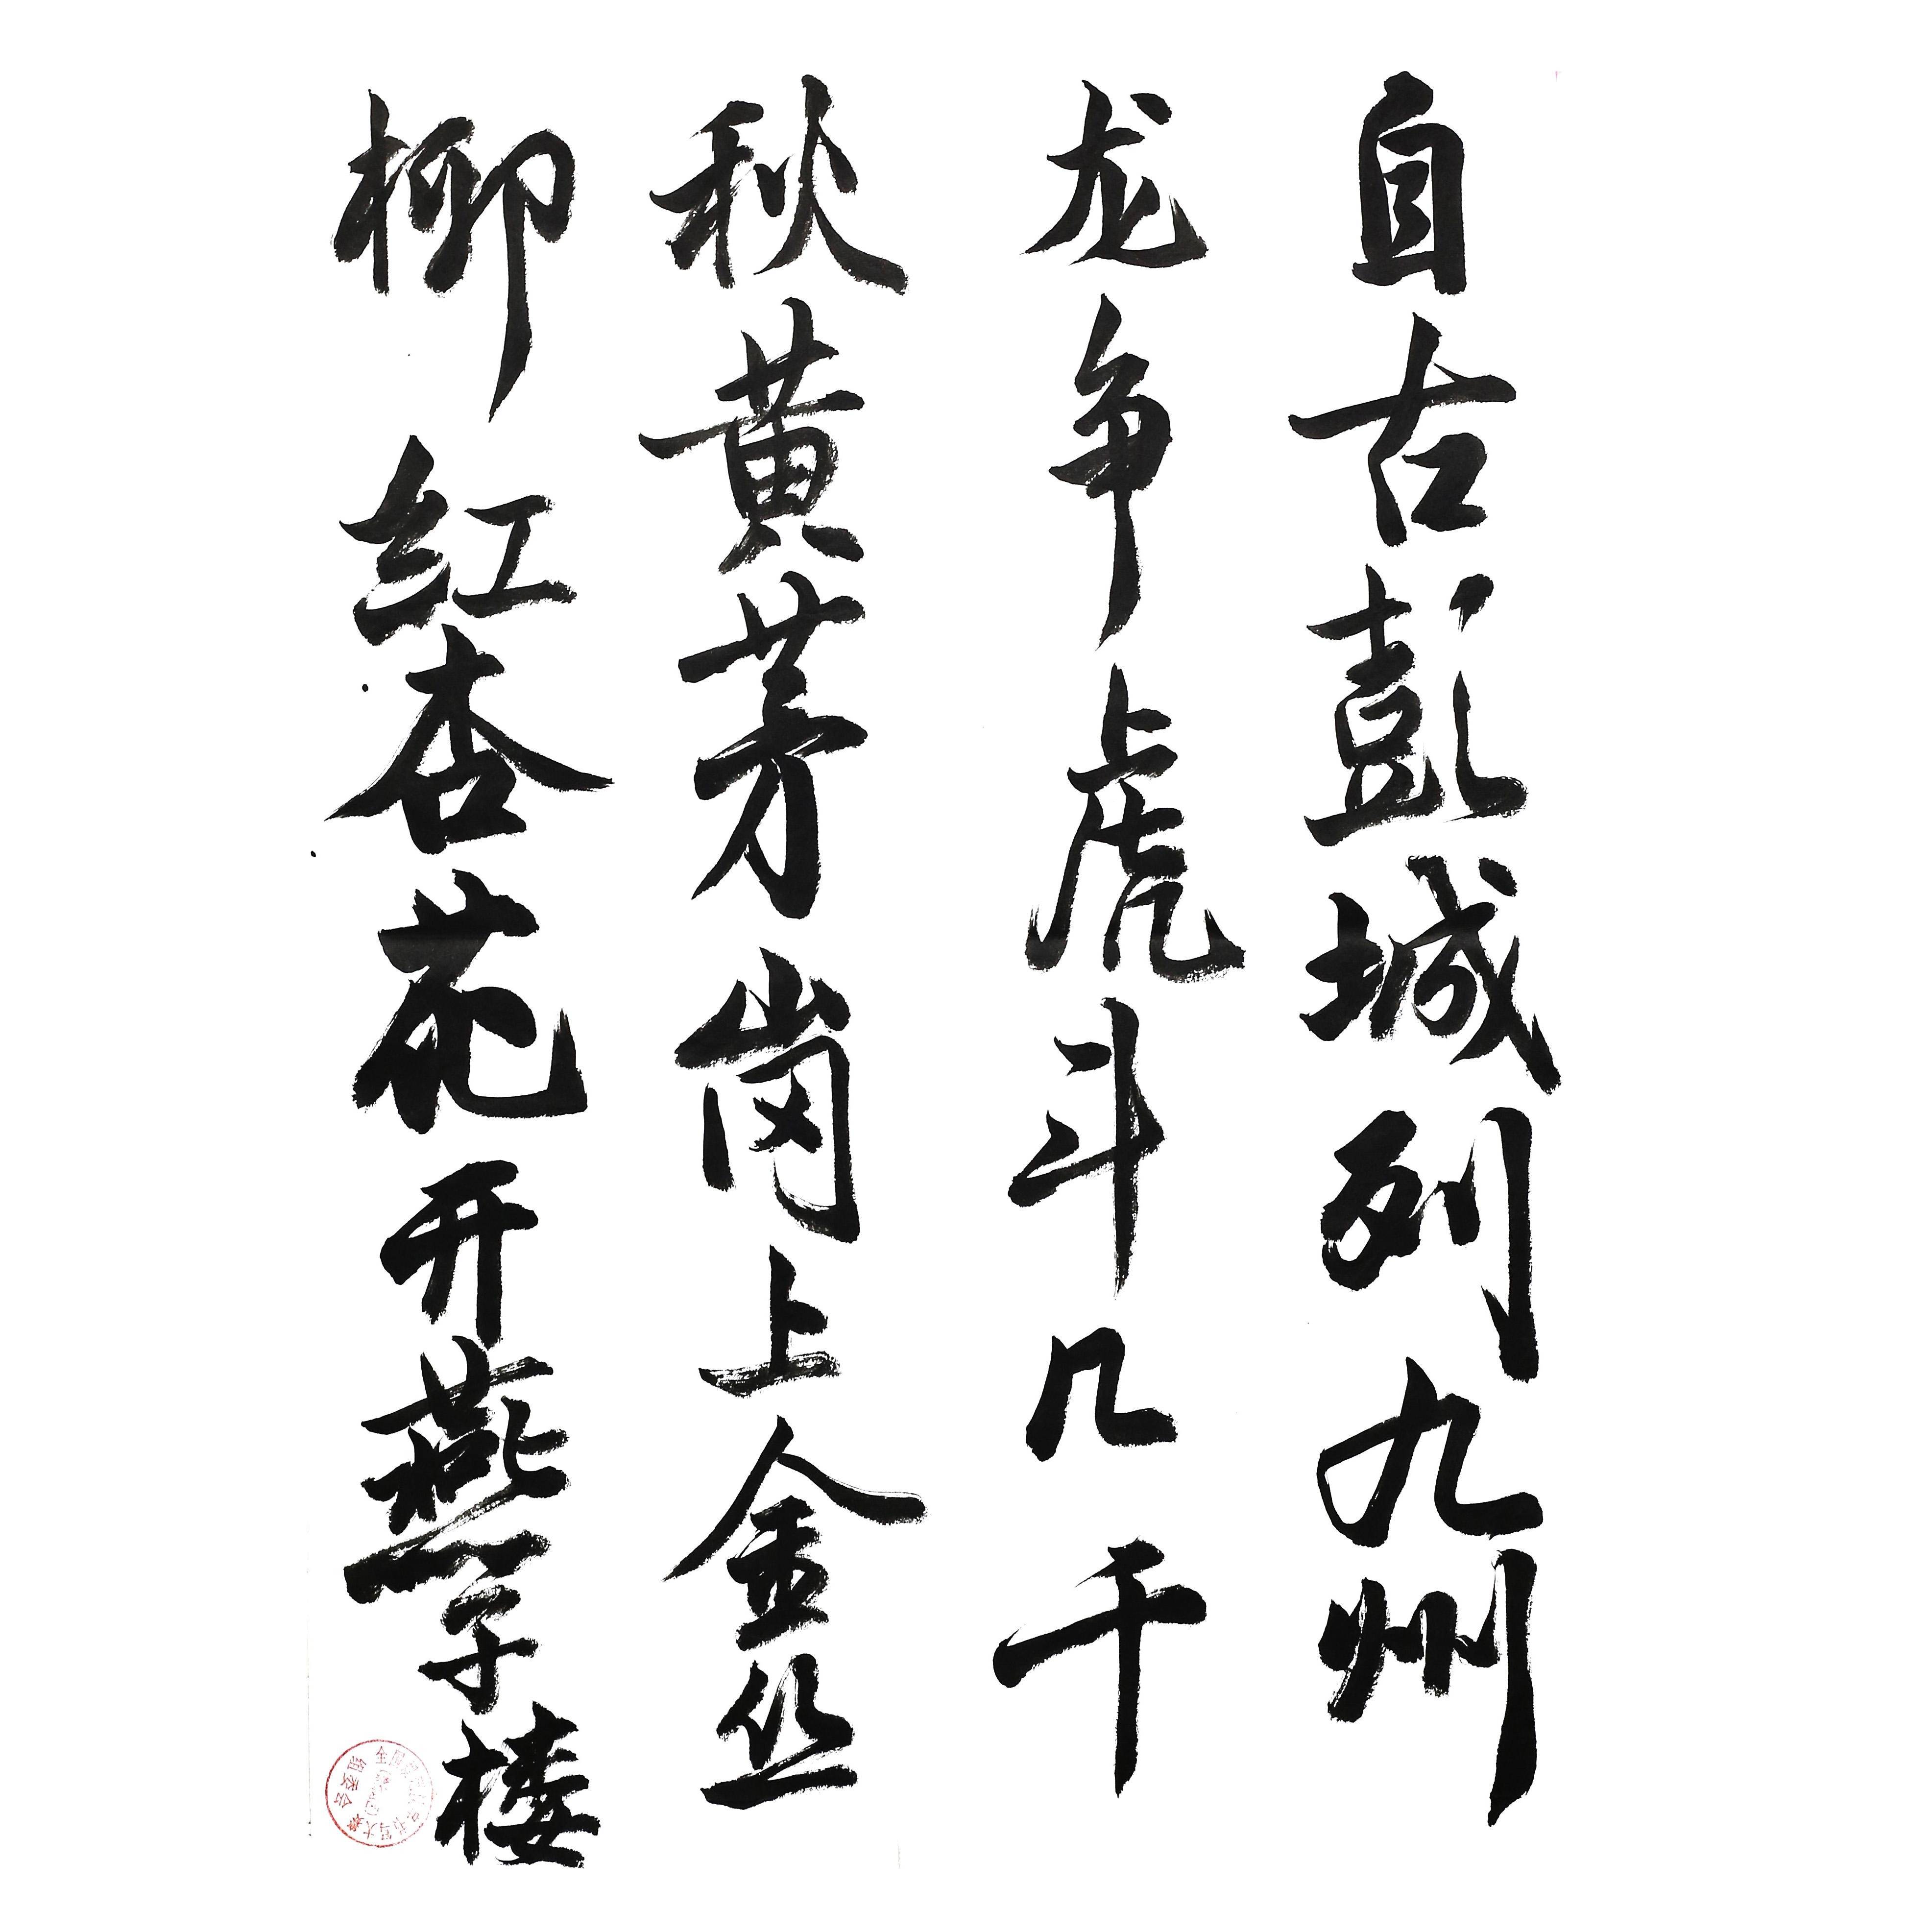 自古彭城列九州
龙争虎斗几千
秋黄茅岗上金丝
柳红杏花开燕子楼